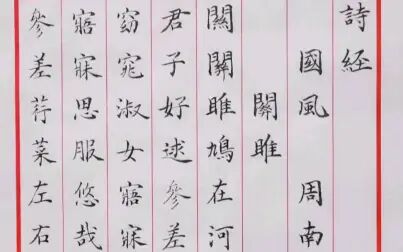 詩経
國風 周南
關雎
關關雎鳩在河
君子好逑參差
窈窕淑女寤寐
寤寐思服悠哉
參差荇菜左右